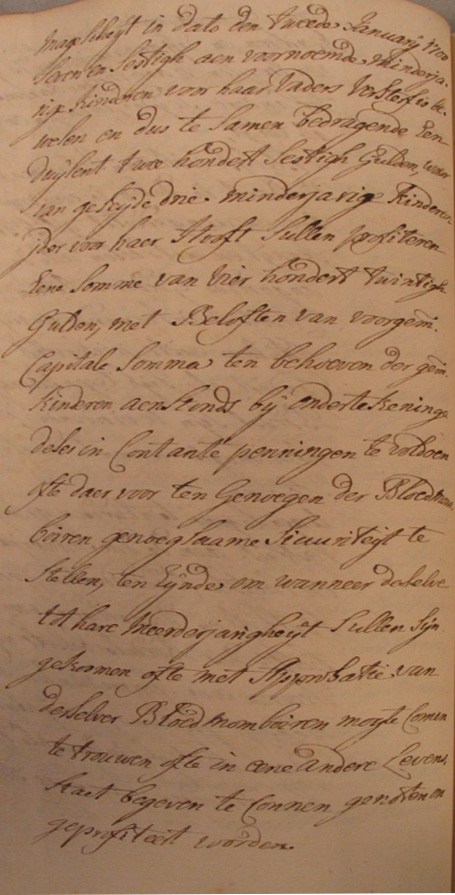 magescheyt in dato den tweede January 1700
seven en sestigh aen voornoemde minderja-
rige kinderen voor haar vaders versterf is be-
wesen en dus te samen bedragende Een
duysent twee hondert sestigh Gulden, waer
van geseyde drie minderjarige kinderen
jder voor haer Hooft sullen profiteren
Eene somme van vier hondert twintigh
Gulden, met Beloften van voorgem:
Capitale somma ten behoeven der gem:
kinderen aenstonds bij ondertekeninge
deses in Contante penningen te voldoen
ofte daer voor ten Genoegen der Bloedmom-
boiren genoegsaame Securiteyt te
stellen, ten Eynde om wanneer deselve
tot hare meerderjarigheyt sullen syn
gekoomen ofte met Approbatie van
deselver Bloedmomboiren moyte Comen
te trouwen ofte in eene andere Levens
staet begeven te Connen genoten en
geprofiteert worden.